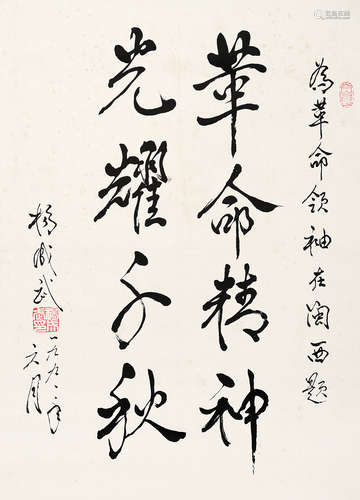 為革命領袖在閩西題
革命精神
光耀千秋
楊成武
一九九二年
六月